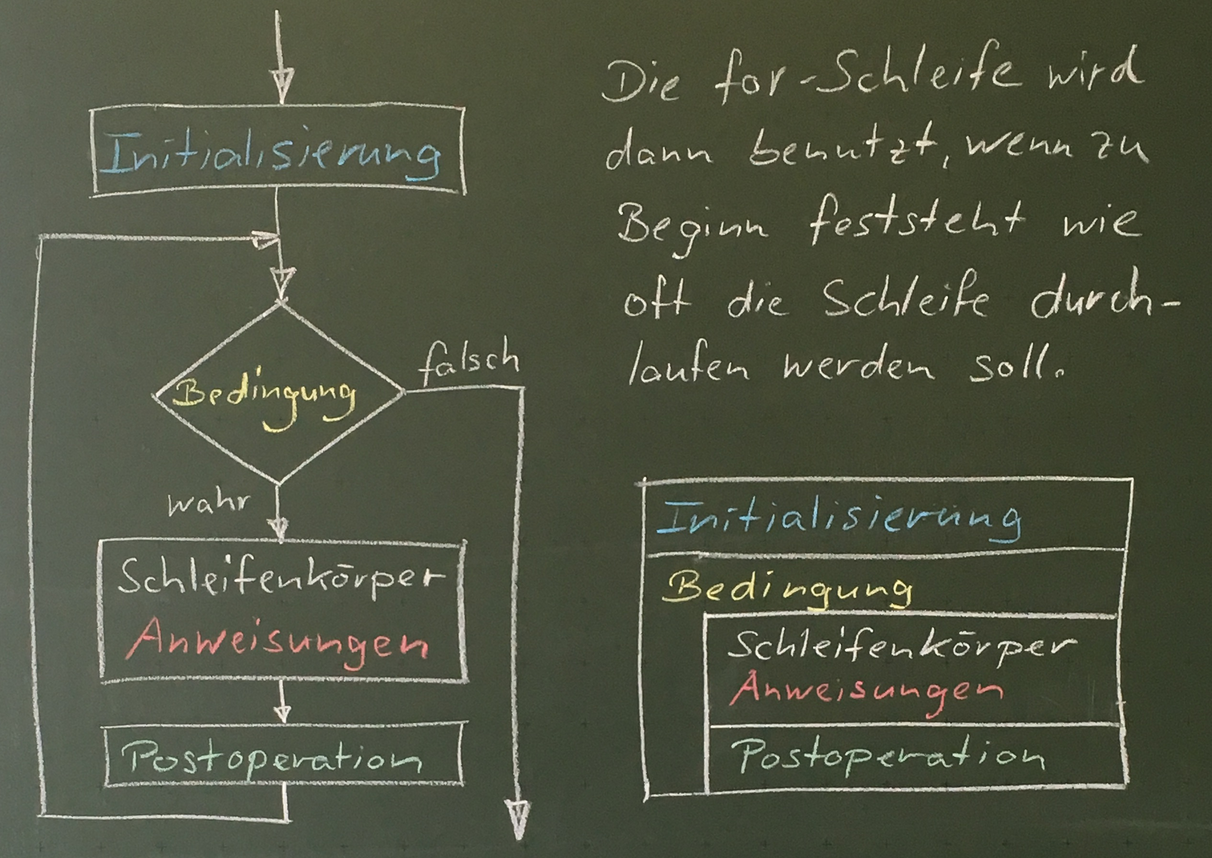 Initialisierung
Bedingung
falsch
wahr
Schleifenkörper
Anweisungen
Postoperation
Die for-Schleife wird
dann benutzt, wenn zu
Beginn feststeht wie
oft die Schleife durch-
laufen werden soll.
Initialisierung
Bedingung
Schleifenkörper
Anweisungen
Postoperation